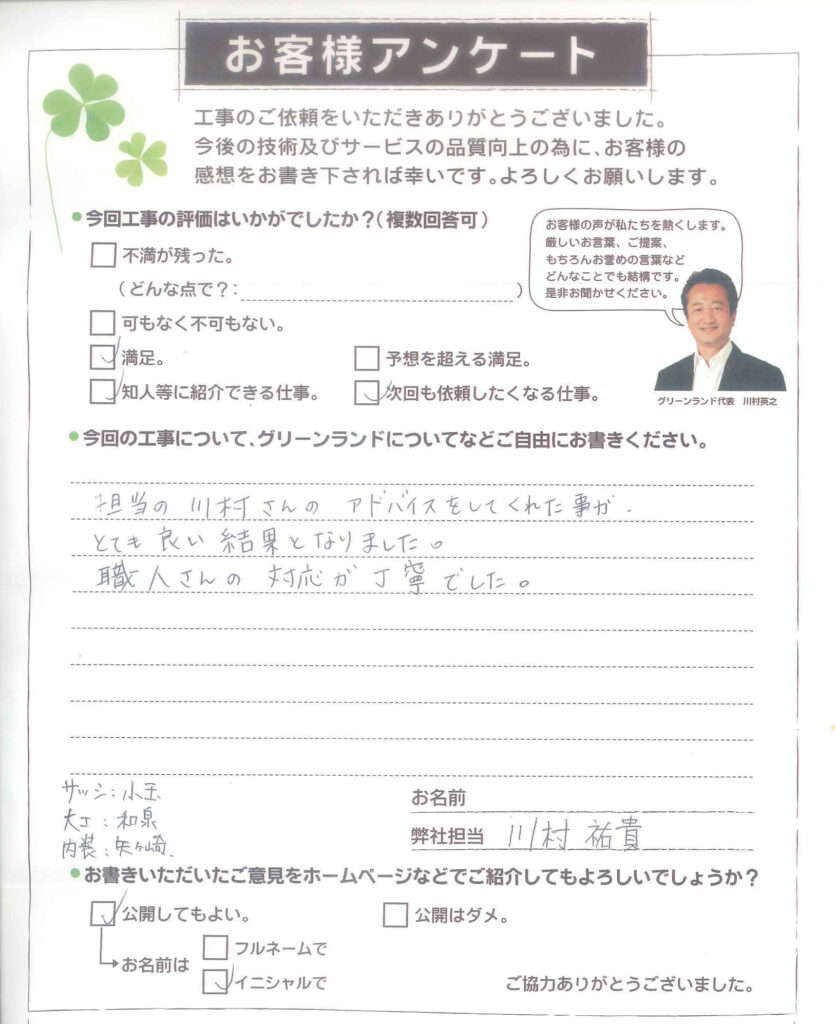 お客様アンケート
工事のご依頼をいただきありがとうございました。
今後の技術及びサービスの品質向上の為に、お客様の
感想をお書き下されば幸いです。よろしくお願いします。
●今回工事の評価はいかがでしたか?(複数回答可)
不満が残った。
(どんな点で?:)
可もなく不可もない。
満足。
予想を超える満足。
知人等に紹介できる仕事。
次回も依頼したくなる仕事。
お客様の声が私たちを熱くします。
厳しいお言葉、ご提案、
もちろんお誉めの言葉など
どんなことでも結構です。
是非お聞かせください。
グリーンランド代表 川村英之
●今回の工事について、グリーンランドについてなどご自由にお書きください。
担当の川村さんの アドバイスをしてくれた事が、
とても良い結果となりました。
職人さんの対応が丁寧でした。
サッシ:小玉
大工:和泉
内装:矢ヶ崎
お名前
弊社担当 川村 祐貴
●お書きいただいたご意見をホームページなどでご紹介してもよろしいでしょうか?
公開してもよい。
公開はダメ。
お名前は
フルネームで
イニシャルで
ご協力ありがとうございました。